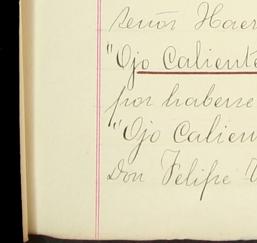 señor Haer
"Ojo Caliente
por haberse
"Ojo Calien
Don Felipe